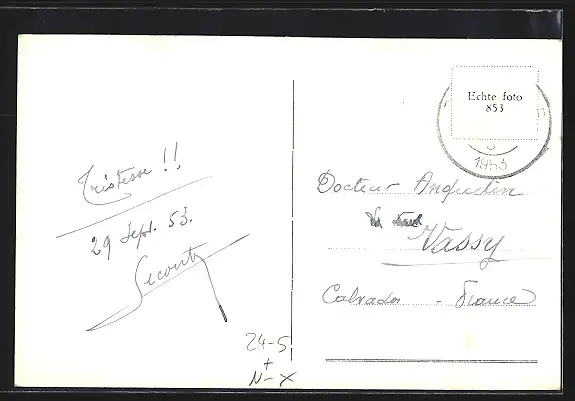 Echte foto
853
1953
Tristesse !!
29 Sept. 53.
Docteur Anquetin
Vassy
Calvados - France
24-5
+
N-X